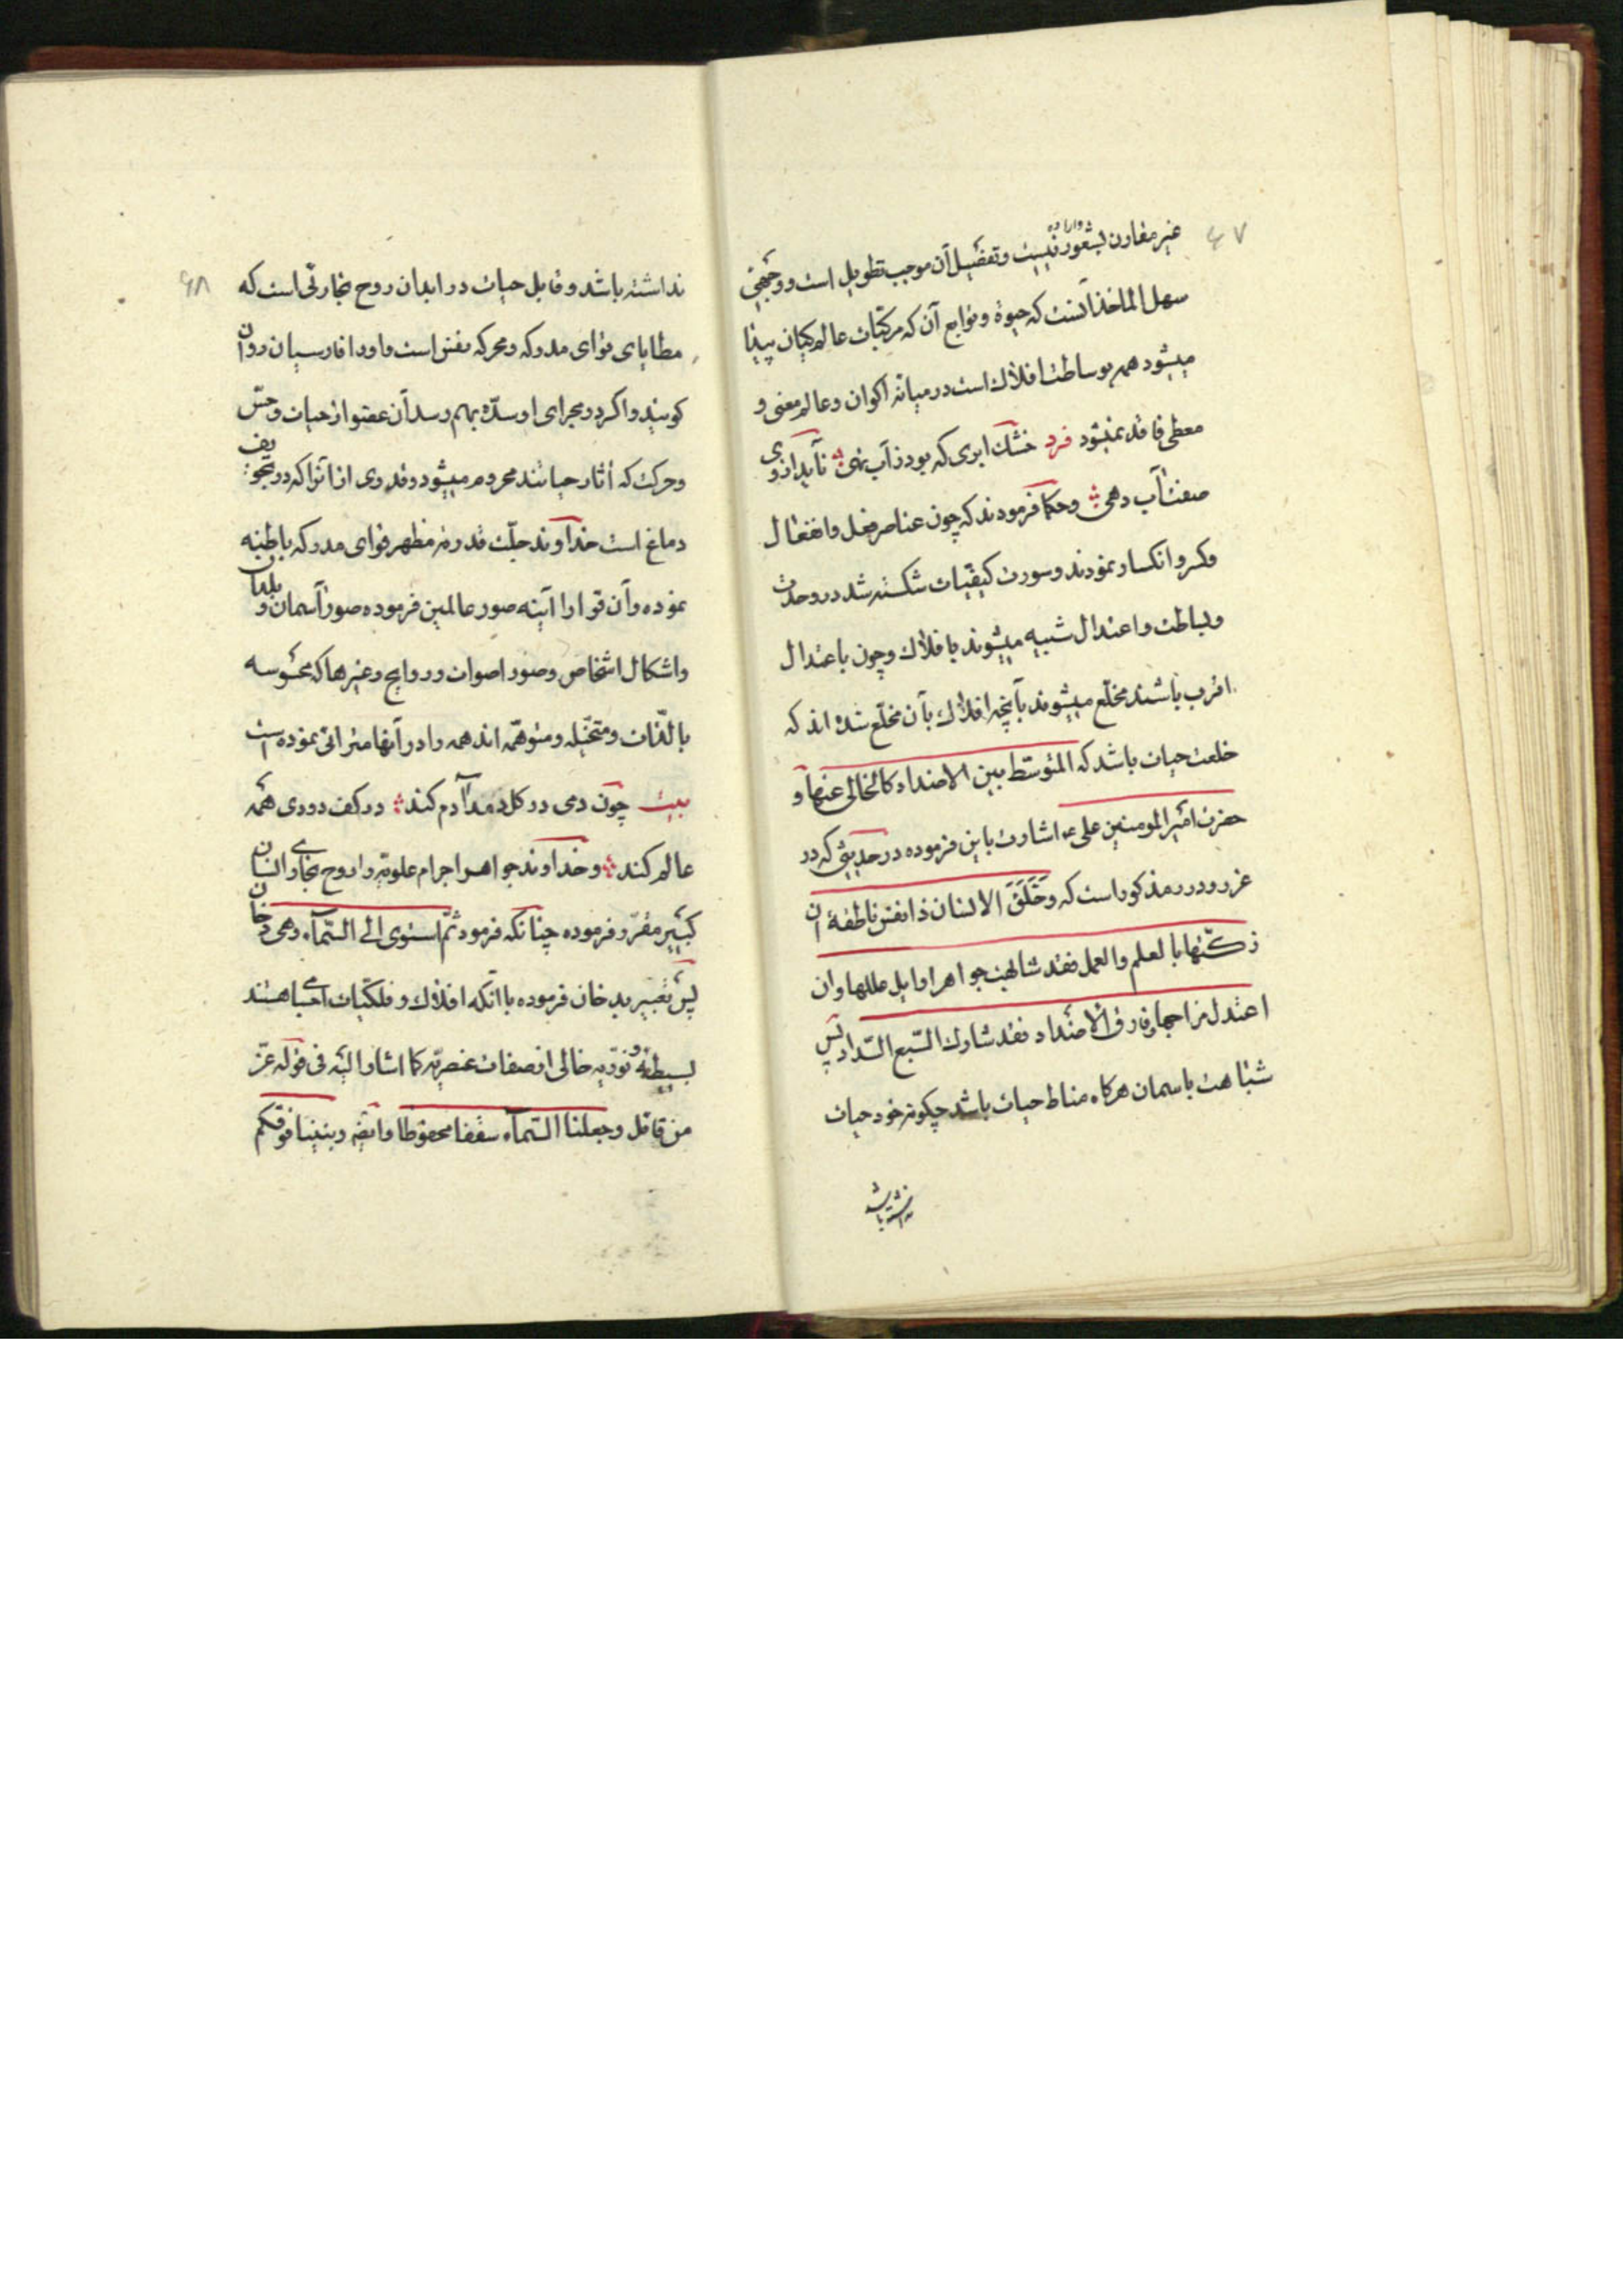 ۶۷
غیر مقارن بشعور واراده نیست وتفصیل آن موجب تطویل است ووجهی
سهل الماخذ آنست که حیوة وتوابع آن که مرکبات عالم کیان پیدا
میشود همه بوساطت افلاک است در میانه اکوان وعالم معنی و
معطی فاقد نمیشود فرد خشک ابری که بود ز آب تهی ناید از وی
صفت آب دهی وحکما فرمودند که چون عناصر فعل وانفعال
وکسر وانکسار نمودند وسورت کیفیات شکسته شد در وحدت
وبساطت واعتدال شبیه میشوند بافلاک وچون باعتدال
اقرب باشند مخلع میشوند بآنچه افلاک بآن مخلع شده اند که
خلعت حیات باشد که المتوسط بین الاضداد کالخالی عنها و
حضرت امیر المومنین علی ع اشارت باین فرموده در حدیثی که در
غرر ودرر مذکور است که وخَلَقَ الانسان ذا نفس ناطقة ان
زکّیها بالعلم والعمل فقد شابهت جواهر اوایل عللها وان
اعتدل مزاجها وفارق الاضداد فقد شارک السّبع الشّداد پس
شباهت باسمان هرگاه مناط حیات باشد چگونه خود حیات
نداشته باشد
۶۸
نداشته باشد وقابل حیات در ابدان روح بخارئی است که
مطایای قوای مدرکه ومحرکه نفس است واو را فارسیان روان
گویند واگر در مجرای او سدّه بهم رسد آن عضو از حیات وحسّ
وحرکت که آثار حیاتند محروم میشود وقدری از انرا که در تجویف
دماغ است خداوند جلّت قدرته مظهر قوای مدرکه باطنیه
نموده وآن قوا را آیینه صور عالمین فرموده صور آسمان وبلدان
واشکال اشخاص وصور اصوات وروایح وغیرها که محسوسه
بالذّات ومتخیّله ومتوهّمه اند همه را در آنها منزل نموده است
بیت چون دمی در گل دمد آدم کند در کف دودی همه
عالم کند وخداوند جواهر اجرام علویّه را روح بخاری انسان
کبیر مقرّر فرموده چنانکه فرمود ثمّ استوی الی السّمآء وهی دخان
پس تعبیر بدخان فرموده با آنکه افلاک وفلکیات اجسامی هستند
بسیطه ونوریه خالی از صفات عنصریّه کما اشار الیه فی قوله عزّ
من قائل وجعلنا السّمآء سقفا محفوظا وایضه وبنینا فوقکم